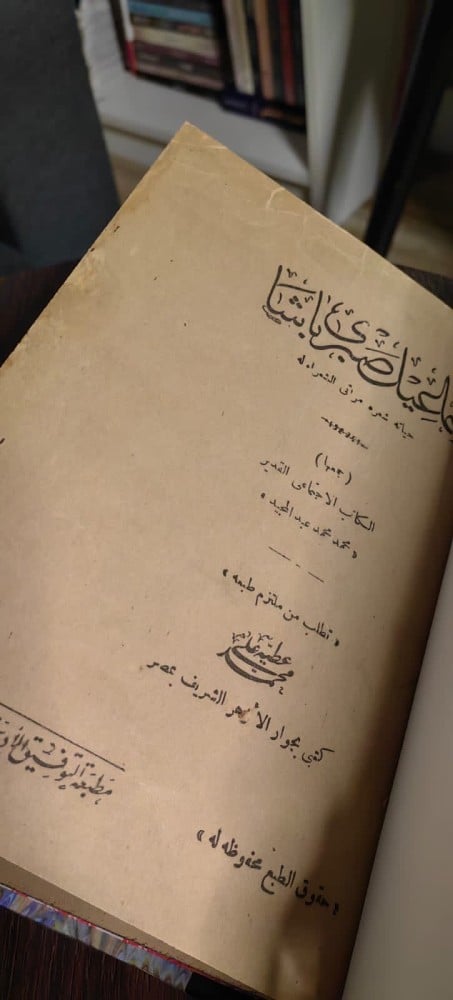 إسماعيل صبري باشا
حياته شعره مراثى الشعراء له
(جمعها)
الكاتب الاجتماعى القدير
« محمد محمد عبد المجيد »
« تطلب من ملتزم طبعه »
محمد عطيه علي
كتبى بجوار الأزهر الشريف بمصر
مطبعة التوفيق
« حقوق الطبع محفوظه له »